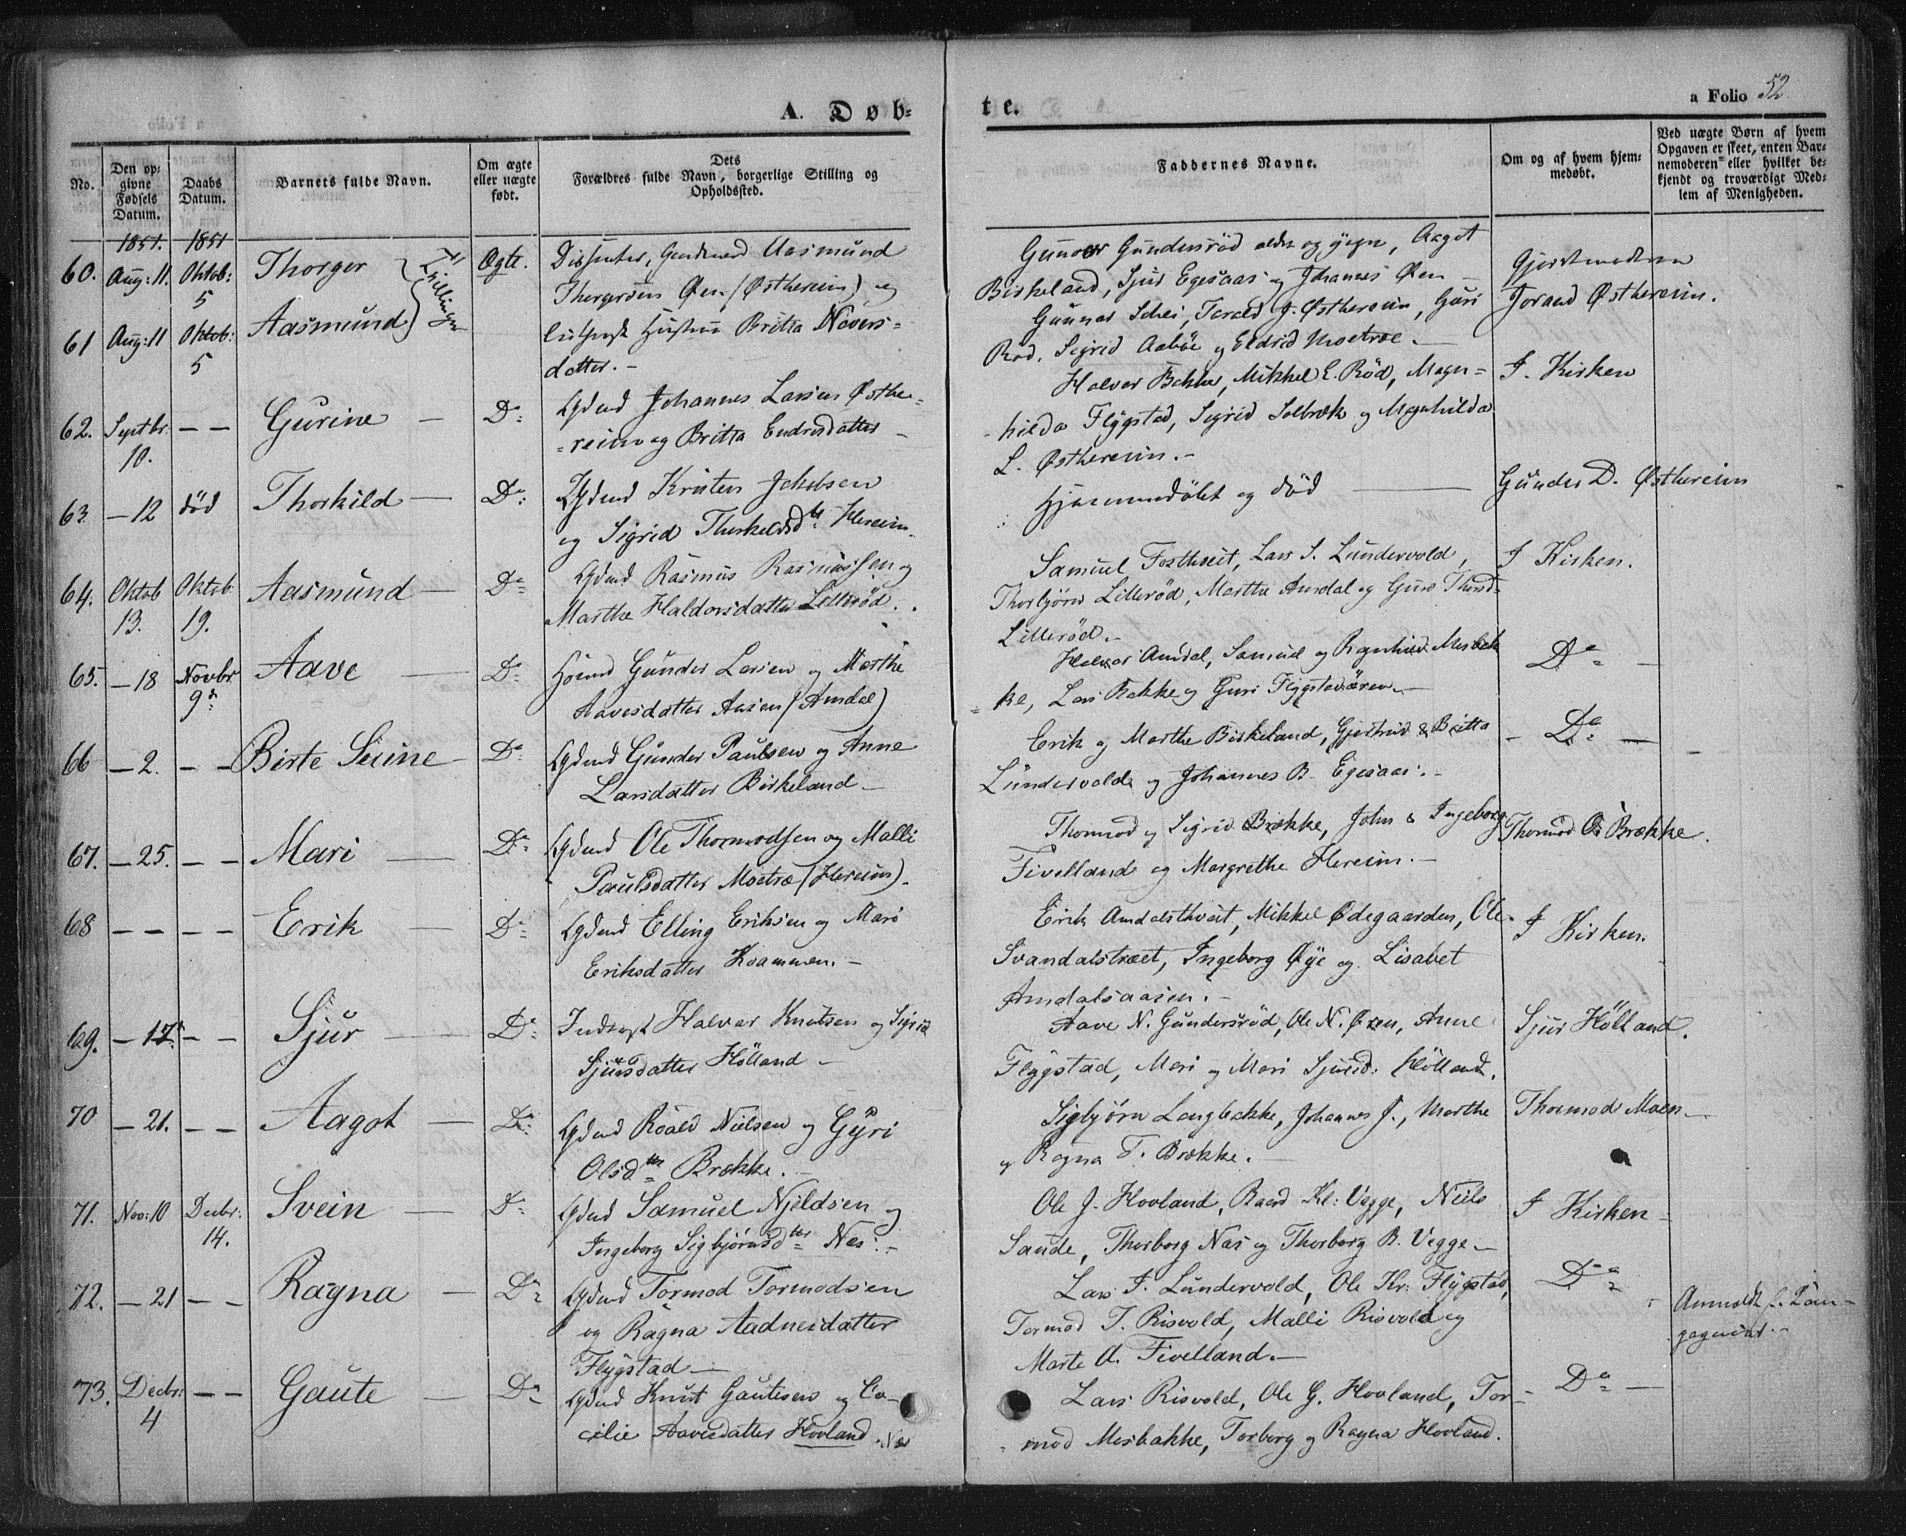 A. Døb-
te.
a Folio 52.
No.
Den op-
givne
Fødsels
Datum.
Daabs
Datum.
Barnets fulde Navn.
Om ægte
eller uægte
født.
Dets
Forældres fulde Navn, borgerlige Stilling og
Opholdssted.
Faddernes Navne.
Om og af hvem hjem-
medøbt.
Ved uægte Børn af hvem
Opgaven er skeet, enten Bar-
nemoderen eller hvilket be-
kjendt og troværdigt Med-
lem af Menigheden.
1851. 1851
60. Aug: 11 Oktob: 5 Thorger Tvillinger Ægte. Dissenter, Aasmund
Thorgersen Øen (Østhereim) og
61 Aug: 11 Oktob: 5 Aasmund Hustru Britta Nevers-
datter.-
Gunner Gundersrød, Aagot
Birkeland, Sjur Egesaas og Johannes Øen
Gunner, Terald J. Østhereim, Guri
Rød, Sigrid Aabøe og Eldrid Moetræe.-
Jorand Østhereim.
62. Septbr. 10. - - Gurine - Do: Johannes Larsen Østhe-
-reim og Britta Endresdatter
Halvor Bakke, Mikkel E. Rød, Magn-
-hilda Flygstad, Sigrid Solbræk og Magnhilda
L. Østhereim.-
I Kirken
63. - 12 død Thorkild - Do: Kristen Jakobsen
og Sigrid Thorkeldsdtr Hereim.
Hjemmedøbt og død
Gunder D. Østhereim
64. Oktob 13. Oktob 19. Aasmund - Do Rasmus Rasmussen og
Marthe Haldorsdatter Lillerød.
Samuel Fosthveit, Lars S. Lundervold,
Thorbjørn Lillerød, Marthe Amdal og Guro Thord-
Lillerød.-
I Kirken.
65. - 18 Novbr 9de Aave - Do Gunder Larsen og Marthe
Aavesdatter Aasen (Amdal)
Halvor Amdal, Samuel og Ragnhild Mosbak-
ke, Lars Bakke og Guri Flygstadøren.-
Do -
66 - 2. - - Birte Serine - Do Gunder Paulsen og Anne
Larsdatter Birkeland -
Erik og Marthe Birkeland, Gjertrud & Britta
Lundervolde og Johannes B. Egesaas.-
- Do -
67. - 25. - - Mari - Do Ole Thormodsen og Malli
Paulsdatter Moetræ (Hereim).
Thormod og Sigrid Brække, John & Ingeborg
Fivelland og Margrethe Hereim.-
Thormod Brække.
68 - - - - Erik - Do Elling Eriksen og Mari
Eriksdatter Kaammen.-
Erik Amdalsthveit, Mikkel Ødegaarden, Ole
Svandalstræet, Ingeborg Øye og Lisabet
Amdalsaasen.-
I Kirken.
69. - 17. - - Sjur - Do Halvor Knutsen og Sigrid
Sjursdatter Hølland -
Aave N. Gundersrød, Ole N. Øren, Anne
Flygstad, Mari og Mari Sjursd: Hølland.
Sjur Hølland.
70 - 21. - - Aagot - Do: Roald Nielsen og Gyri
Olsdtr Brække.
Sigbjørn Langbakke, Johannes J., Marthe
og Ragna T. Brække.-
Thormod Moen
71. Nov: 10 Decbr: 14. Svein - Do Samuel Njeldsen og
Ingeborg Sigbjørnsdtr Næs.-
Ole J. Hovland, Baard Kl: Vegge, Niels
Sande, Thorborg Næs og Thorborg B. Vegge.-
I Kirken-
72. - 21 - - Ragna - Do Tormod Tormodsen
og Ragna Aadnesdatter
Flygstad -
Lars T. Lundervold, Ole Kr: Flygstad,
Tormod T. Risvold, Malli Risvold og
Marte A. Fivelland.-
Do
73. Decbr: 4 - - Gaute - Do Knut Gautesen og Ce-
cilie Aavesdatter Hovland. Næs
Lars Risvold, Ole G. Hovland, Tor-
mod Mosbakke, Torborg og Ragna Hovland.
- Do -